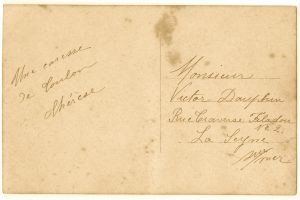 Une caresse
de Toulon
Thérèse
Monsieur
Victor Dauphin
Rue Traverse
No 2
La Seyne
sur mer